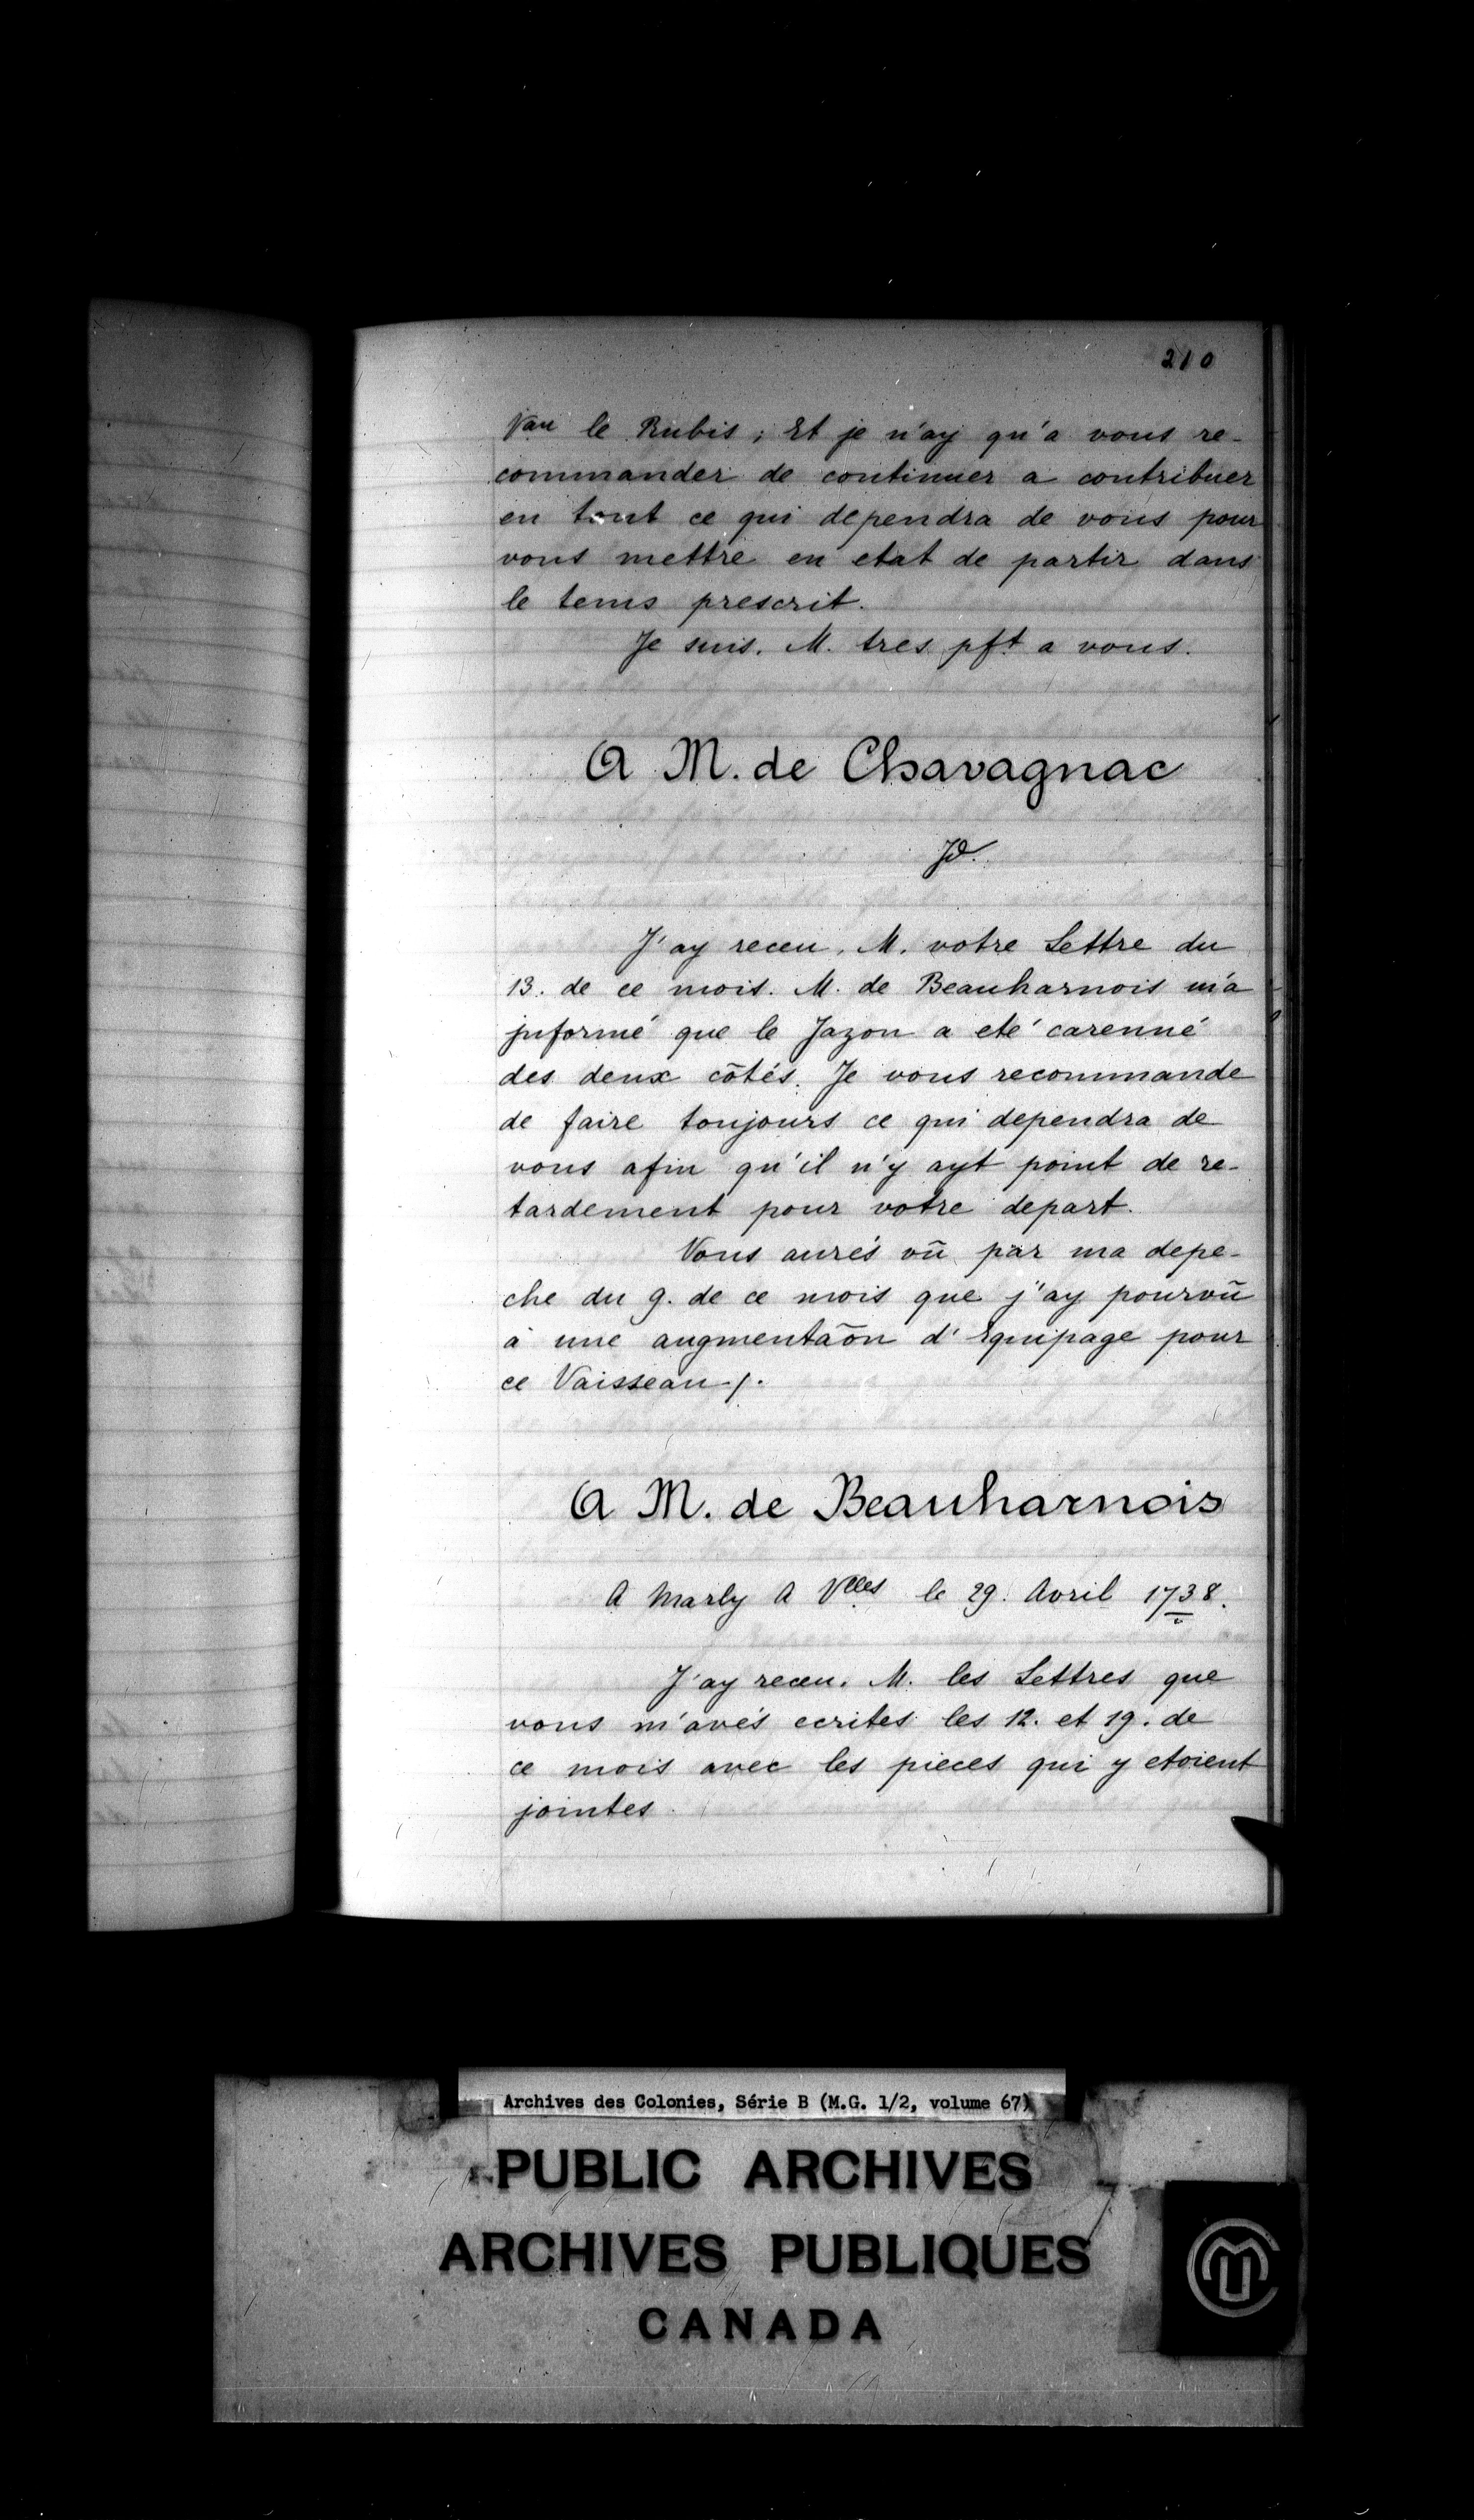 210
Vau le Rubis ; Et je n'ay qu'a vous re-
commander de continuer a contribuer
en tout ce qui dependra de vous pour
vous mettre en etat de partir dans
le tems prescrit.
Je suis. M. tres pft a vous.
A M. de Chavagnac
Jd.
J'ay receu. M. votre Lettre du
13. de ce mois. M. de Beauharnois m'a
jnformé que le Jazon a eté carenné
des deux côtés. Je vous recommande
de faire toujours ce qui dependra de
vous afin qu'il n'y ayt point de re-
tardement pour votre depart.
Vous aurés vû par ma depe-
che du 9. de ce mois que j'ay pourvû
à une augmentaõn d'Equipage pour
ce Vaisseau ./.
A M. de Beauharnois
A Marly A Vlles le 29. Avril 1738.
J'ay receu. M. les Lettres que
vous m'avés ecrites les 12. et 19. de
ce mois avec les pieces qui y etoient
jointes.
Archives des Colonies, Série B (M.G. 1/2, volume 67)
PUBLIC ARCHIVES
ARCHIVES PUBLIQUES
CANADA